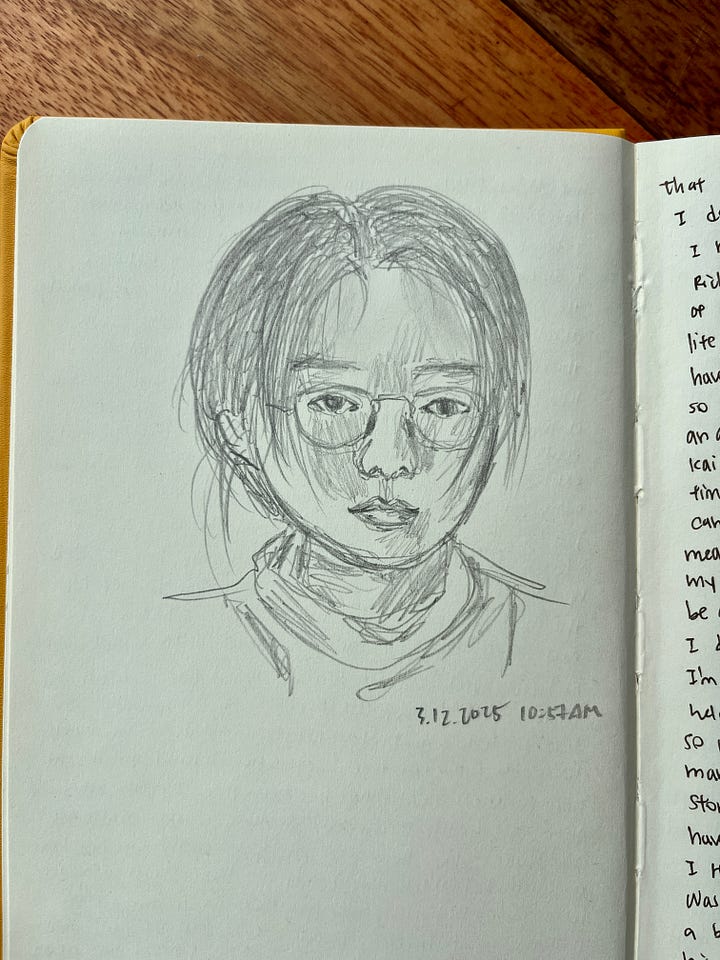 3.12.2025 10:57AM
that
I
I
Rich
of
life
hav
so
an
kai
tim
can
mea
my
be
I
I'm
hel
so
ma
stor
hav
I
Was
a